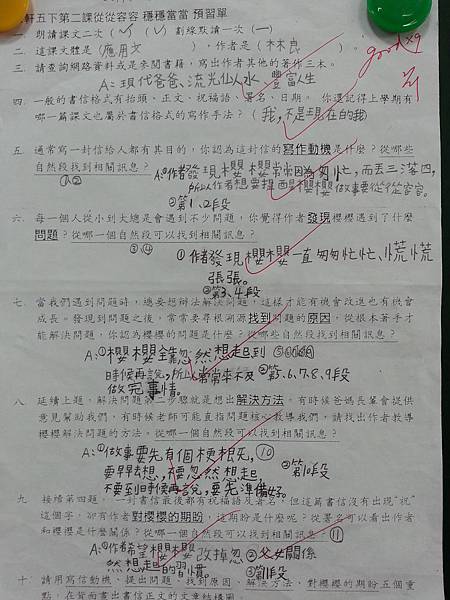 軒五下第二課從從容容 穩穩當當 預習單
一、朗讀課文二次 (✓)(✓) 劃線默讀一次 (一)
二、這課文體是 ( 應用文 )，作者是 ( 林良 )。
三、請查詢網路資料或是參閱圖書，寫出作者其他的著作三本。
A:現代爸爸、流光似水、豐富人生
good×9
四、一般的書信格式有抬頭、正文、祝福語、署名、日期。 你還記得上學期有
哪一篇課文也屬於書信格式的寫作手法？(我,不是現在的我)
五、通常寫一封信給人都有其目的，你認為這封信的寫作動機是什麼？從哪些
自然段找到相關訊息？
①②
A:①作者發現櫻櫻常常因為匆忙，而丟三落四，
所以作者想要提醒櫻櫻做事要從從容容。
②第1、2段
六、每一個人從小到大總是會遇到不少問題，你覺得作者發現櫻櫻遇到了什麼
問題？從哪一個自然段可以找到相關訊息？
③、④
①作者發現櫻櫻一直匆匆忙忙、慌慌
張張。
②第3、4段
七、當我們遇到問題時，總要想辦法解決問題，這樣才能有機會改進也有機會
成長。發現到問題之後，常常要尋根溯源找到問題的原因，從根本著手才
能解決問題，你認為櫻櫻的問題是什麼？從哪些自然段找到相關訊息？
A:①櫻櫻會忽然想起到
時候再說，所以常常來不及
做完事情。
②第5、6、7、8、9段
八、延續上題，解決問題第二步驟就是想出解決方法，有時候爸媽長輩會提供
意見幫助我們，有時候老師可能直指問題核心教導我們，請找出作者教導
櫻櫻解決問題的方法。從哪一個自然段可以找到相關訊息？
A:①做事要先有個梗概，⑩
要早去想，不要忽然想起，
不要到時候再說，要先準備好。
②第10段
九、接續第四題，一封書信最後都有祝福語及署名，但這篇書信沒有出現"祝"
這個字，卻有作者對櫻櫻的期盼，這期盼是什麼呢？從署名可以看出作者
和櫻櫻是什麼關係？從哪一個自然段可以找到相關訊息？⑪
A:①作者希望櫻櫻改掉忽
然想起的習慣。
②父女關係
③第11段
十、請用寫信動機、提出問題、找到原因、解決方法、對櫻櫻的期盼五個重
點，在背面畫出書信正文的文章結構圖。